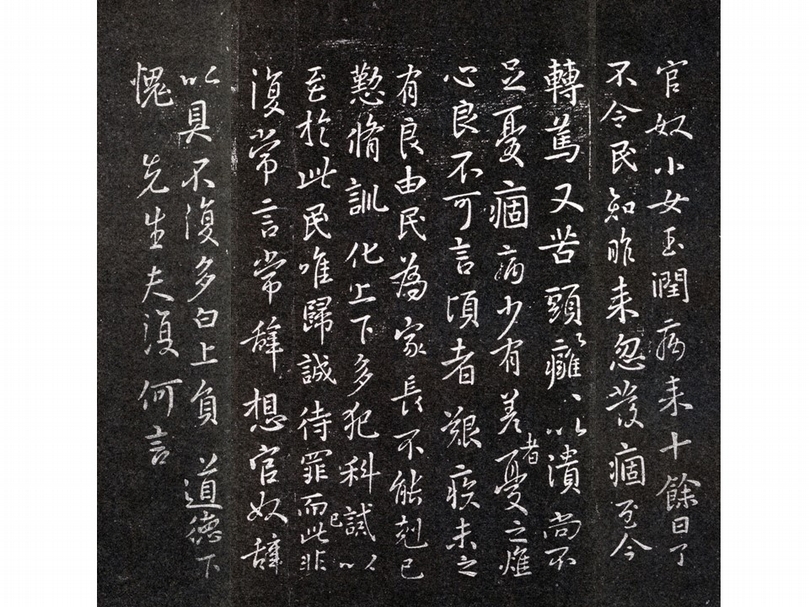 官奴小女玉潤病來十餘日了
不令民知昨來忽發痼至今
轉篤又苦頭癰頭癰以潰尚不
足憂痼病少有差者憂之燋
心良不可言頃者艱疾未之
有良由民為家長不能剋己
懃脩訓化上下多犯科誡以
至於此民唯歸誠待罪而已此非
復常言常辭想官奴辭
以具不復多白上負道德下
愧先生夫復何言